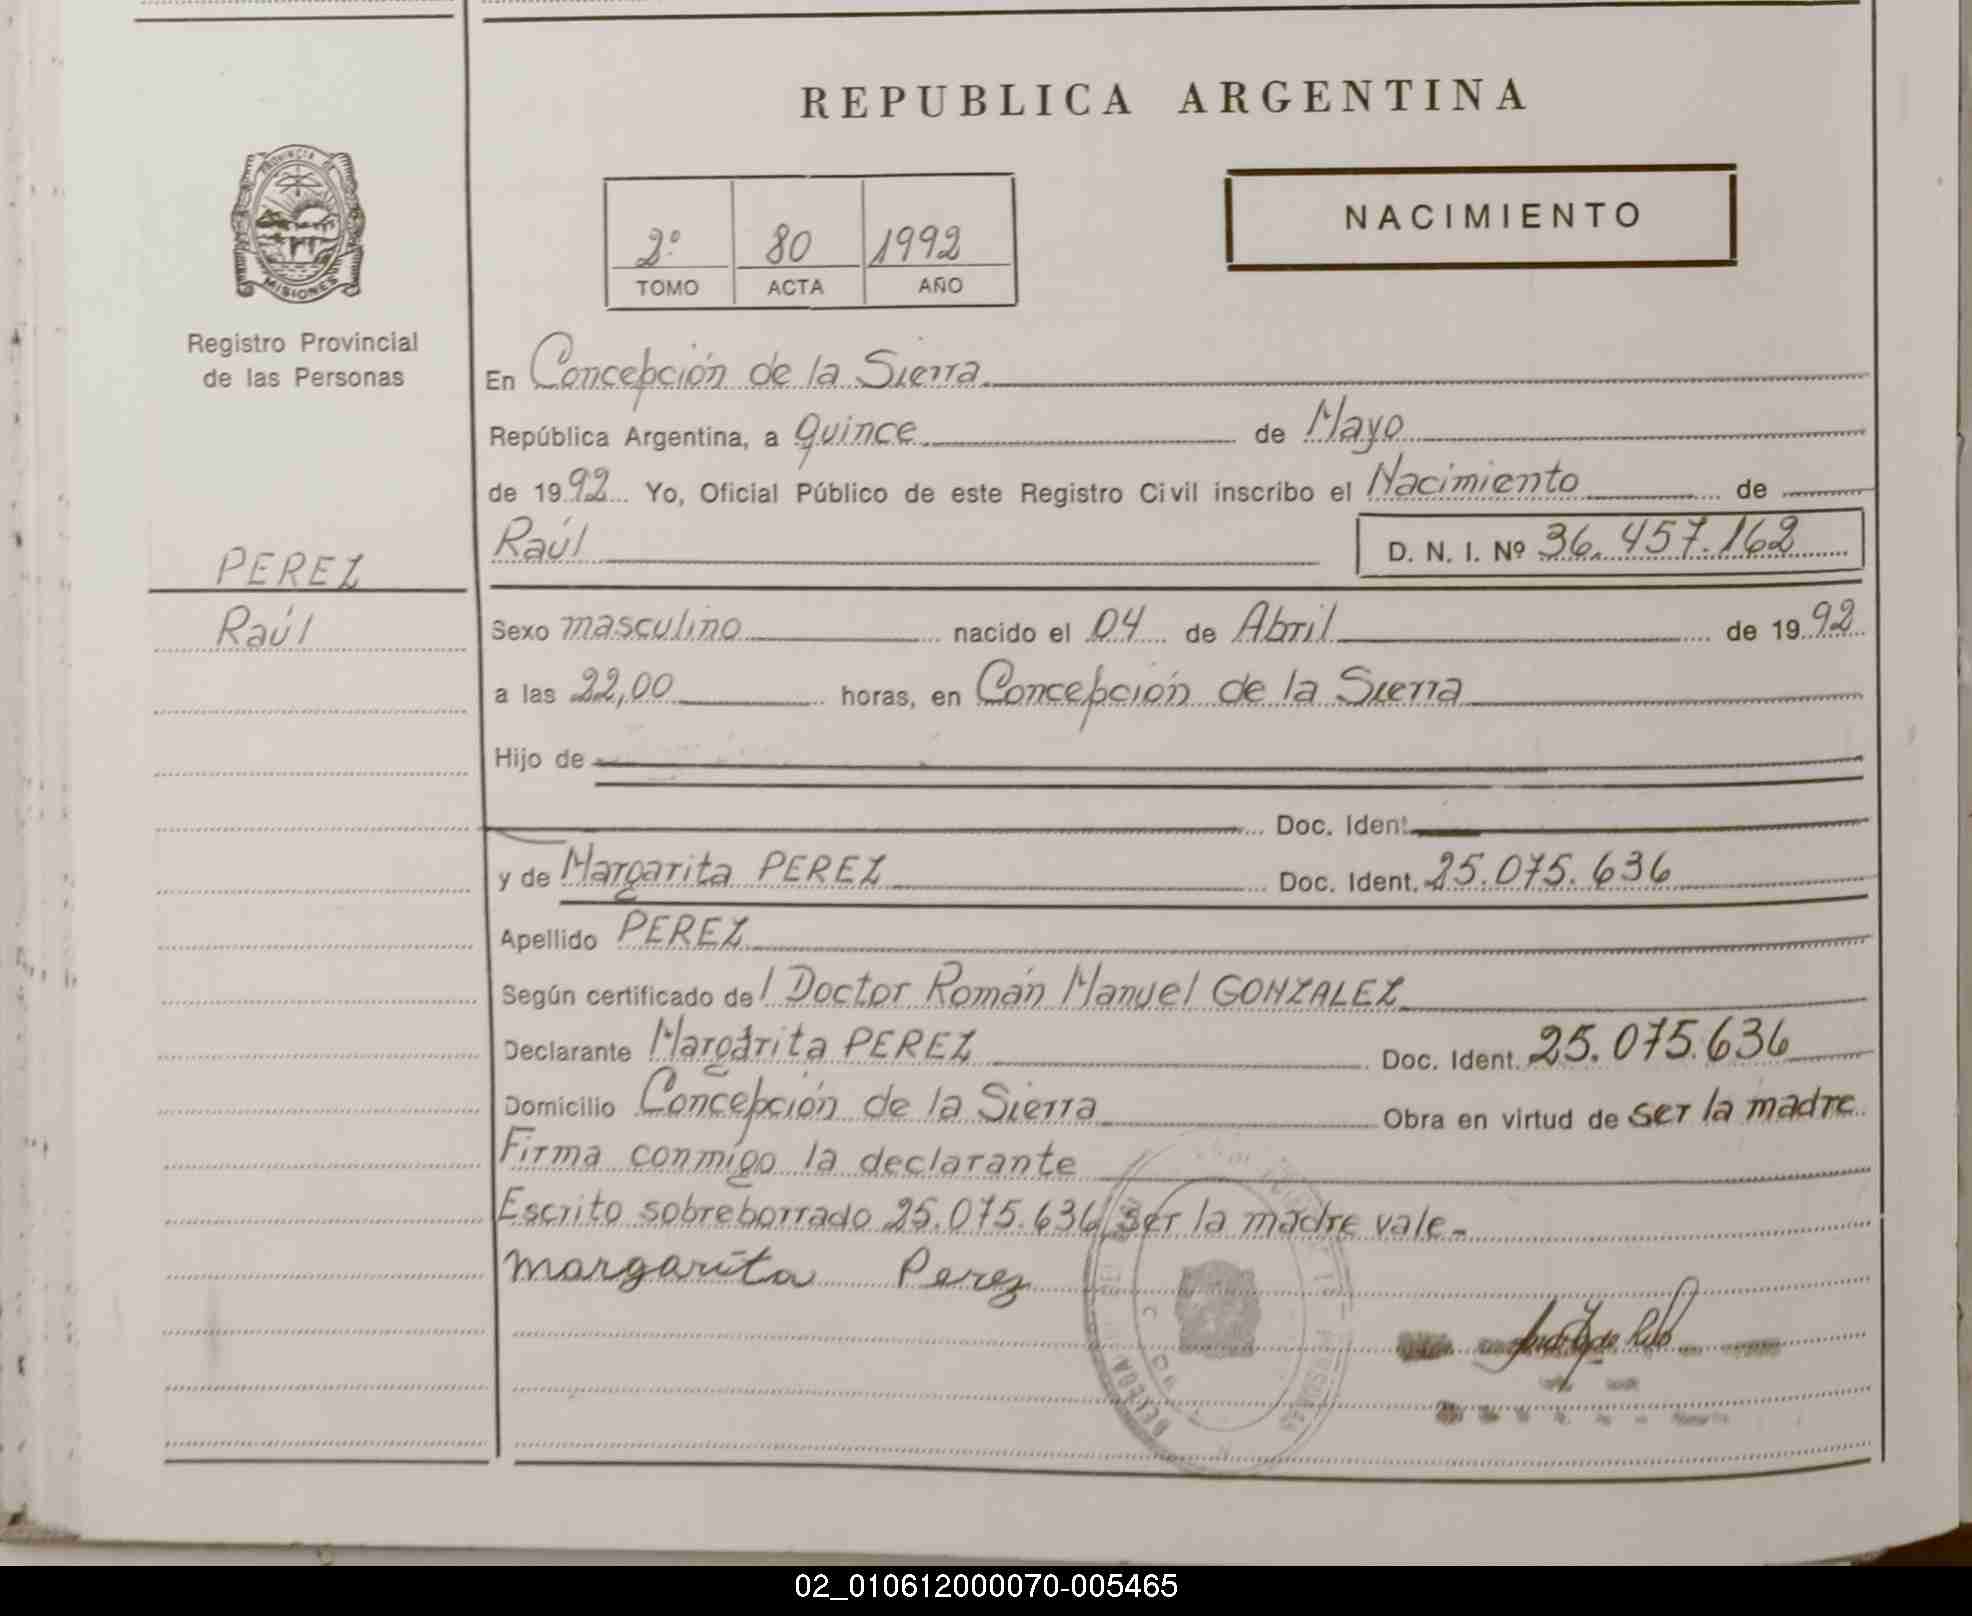 REPUBLICA ARGENTINA
PROVINCIA DE
MISIONES
Registro Provincial
de las Personas
2º 80 1992
TOMO ACTA AÑO
NACIMIENTO
En Concepción de la Sierra
República Argentina, a quince de Mayo
de 1992 Yo, Oficial Público de este Registro Civil inscribo el Nacimiento de
Raúl D. N. I. Nº 36.457.162
PEREZ
Raúl
Sexo masculino nacido el 04 de Abril de 1992
a las 22,00 horas, en Concepción de la Sierra
Hijo de
Doc. Ident.
y de Margarita PEREZ Doc. Ident. 25.075.636
Apellido PEREZ
Según certificado del Doctor Román Manuel GONZALEZ
Declarante Margarita PEREZ Doc. Ident. 25.075.636
Domicilio Concepción de la Sierra Obra en virtud de ser la madre
Firma conmigo la declarante
Escrito sobreborrado 25.075.636/ser la madre vale-
Margarita Perez
02_010612000070-005465